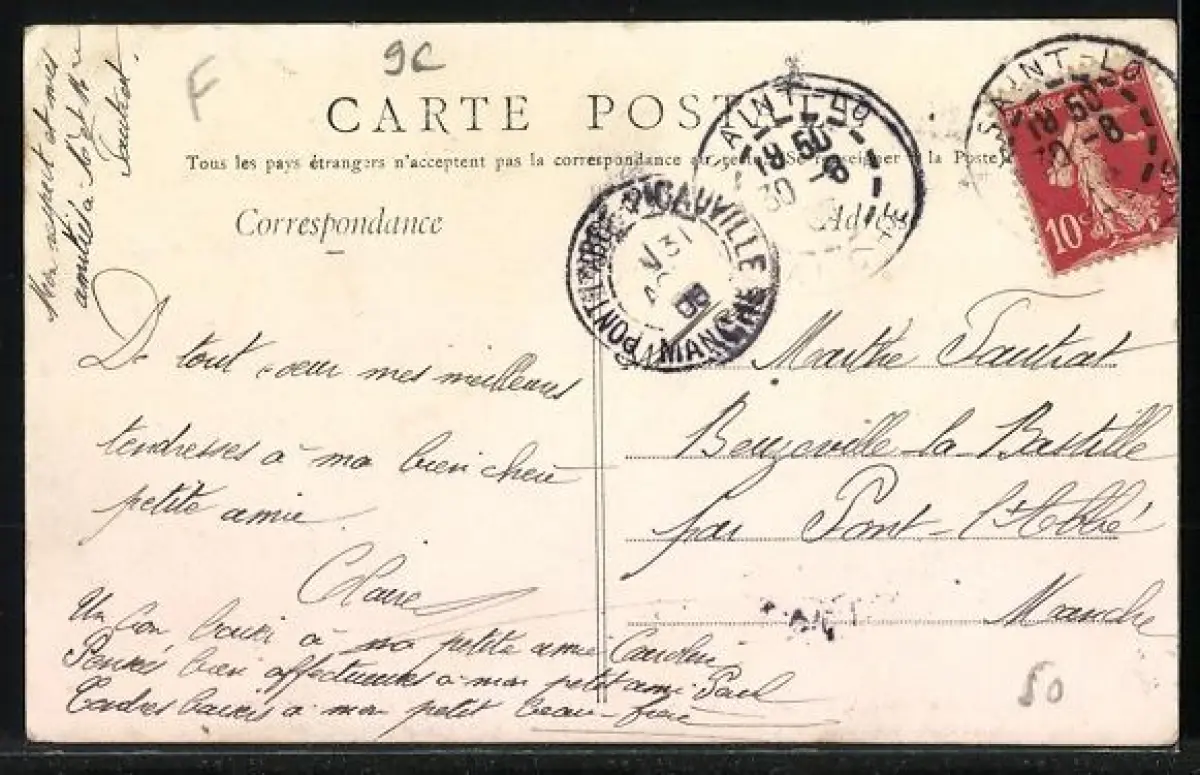 Mon respect et mes
amitiés à Mr et Mme
Tautrat.
F
9C
CARTE POSTALE
Tous les pays étrangers n'acceptent pas la correspondance au recto. (Se renseigner à la Poste)
Correspondance
Adresse
SAINT-LO
18 50
30 -8
SAINT-LO
18 50
30 -8
10c
PICAUVILLE
31
08
MANCHE
De tout cœur mes meilleures
tendresses à ma bien chère
petite amie.
Claire
Un bon baiser à ma petite amie
Pensées bien affectueuses à mon petit ami Paul
Tendres baisers à mon petit beau-frère
Marthe Tautrat
Beuzeville-la-Bastille
par Pont-l'Abbé
Manche
50